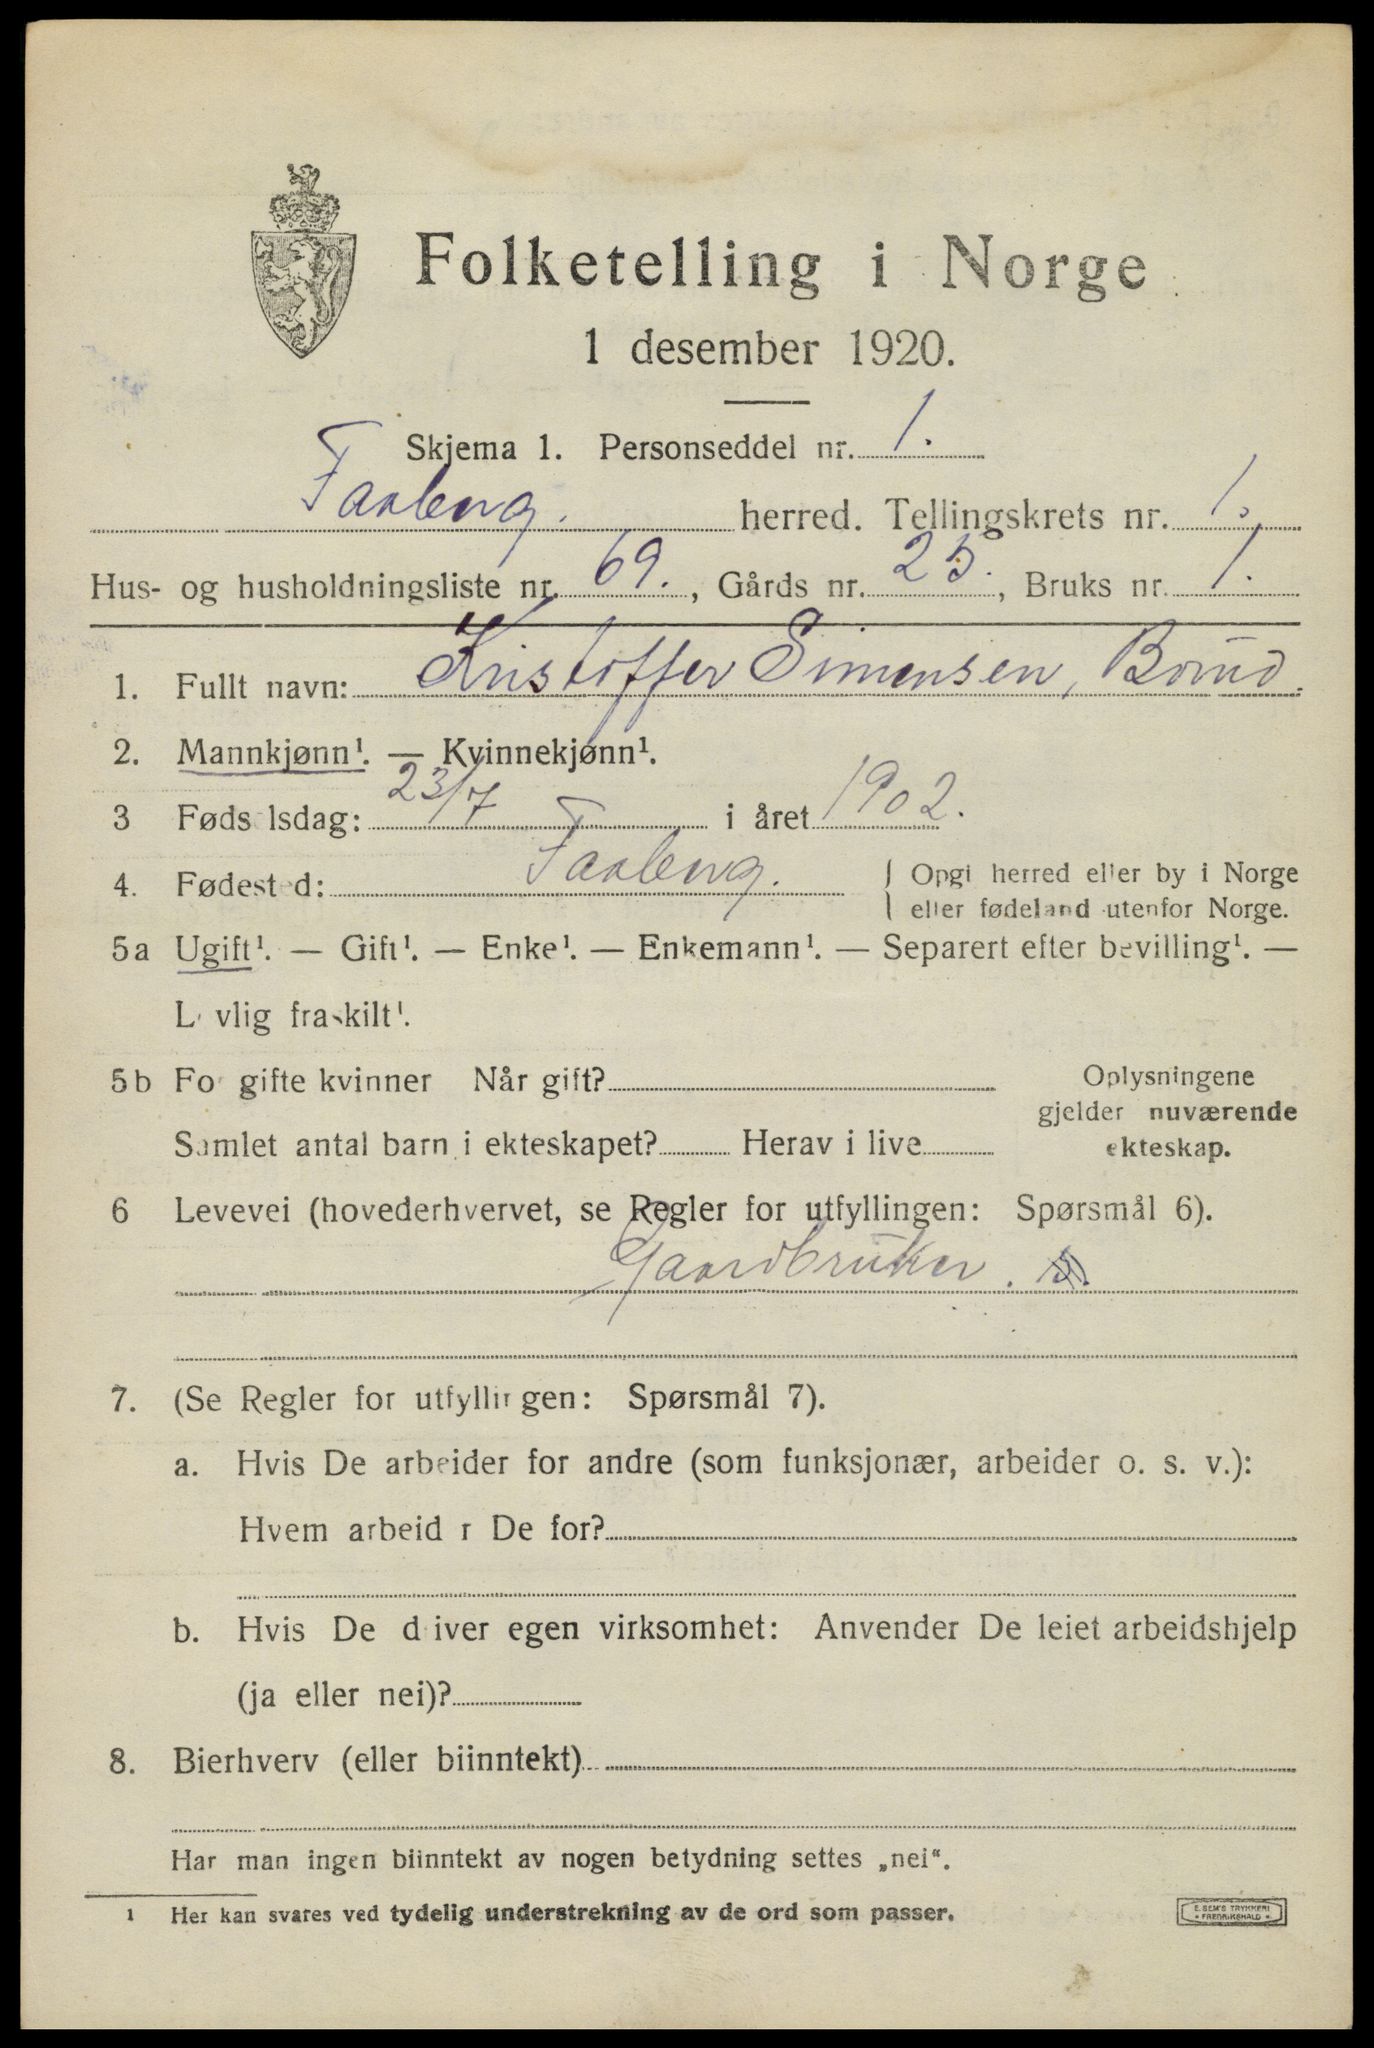 Folketelling i Norge
1 desember 1920.
Skjema 1. Personseddel nr. 1.
Faaberg. herred. Tellingskrets nr. 1.
Hus- og husholdningsliste nr. 69., Gårds nr. 25., Bruks nr. 1.
1. Fullt navn: Kristoffer Simensen,
2. Mannkjønn¹. — Kvinnekjønn¹.
3 Føds lsdag: 23/7 i året 1902.
4. Fødested: Faaberg. { Opgi herred eller by i Norge
{ eller fødeland utenfor Norge.
5a Ugift¹. — Gift¹. — Enke¹. — Enkemann¹. — Separert efter bevilling¹. —
L vlig fraskilt¹.
5b For gifte kvinner Når gift? Oplysningene
gjelder nuværende
Samlet antal barn i ekteskapet? Herav i live ekteskap.
6 Levevei (hovederhvervet, se Regler for utfyllingen: Spørsmål 6).
Gaardbruker.
7. (Se Regler for utfyllingen: Spørsmål 7).
a. Hvis De arbeider for andre (som funksjonær, arbeider o. s. v.):
Hvem arbeid r De for?
b. Hvis De d iver egen virksomhet: Anvender De leiet arbeidshjelp
(ja eller nei)?
8. Bierhverv (eller biinntekt)
Har man ingen biinntekt av nogen betydning settes „nei“.
1 Her kan svares ved tydelig understrekning av de ord som passer.
E. SEM'S TRYKKERI
FREDRIKSHALD